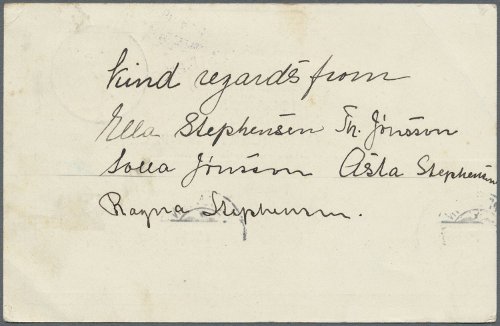 kind regards from
Ella Stephensen Th. Jónsson
Soffía Jónsson Ásta Stephensen
Ragna Stephensen.